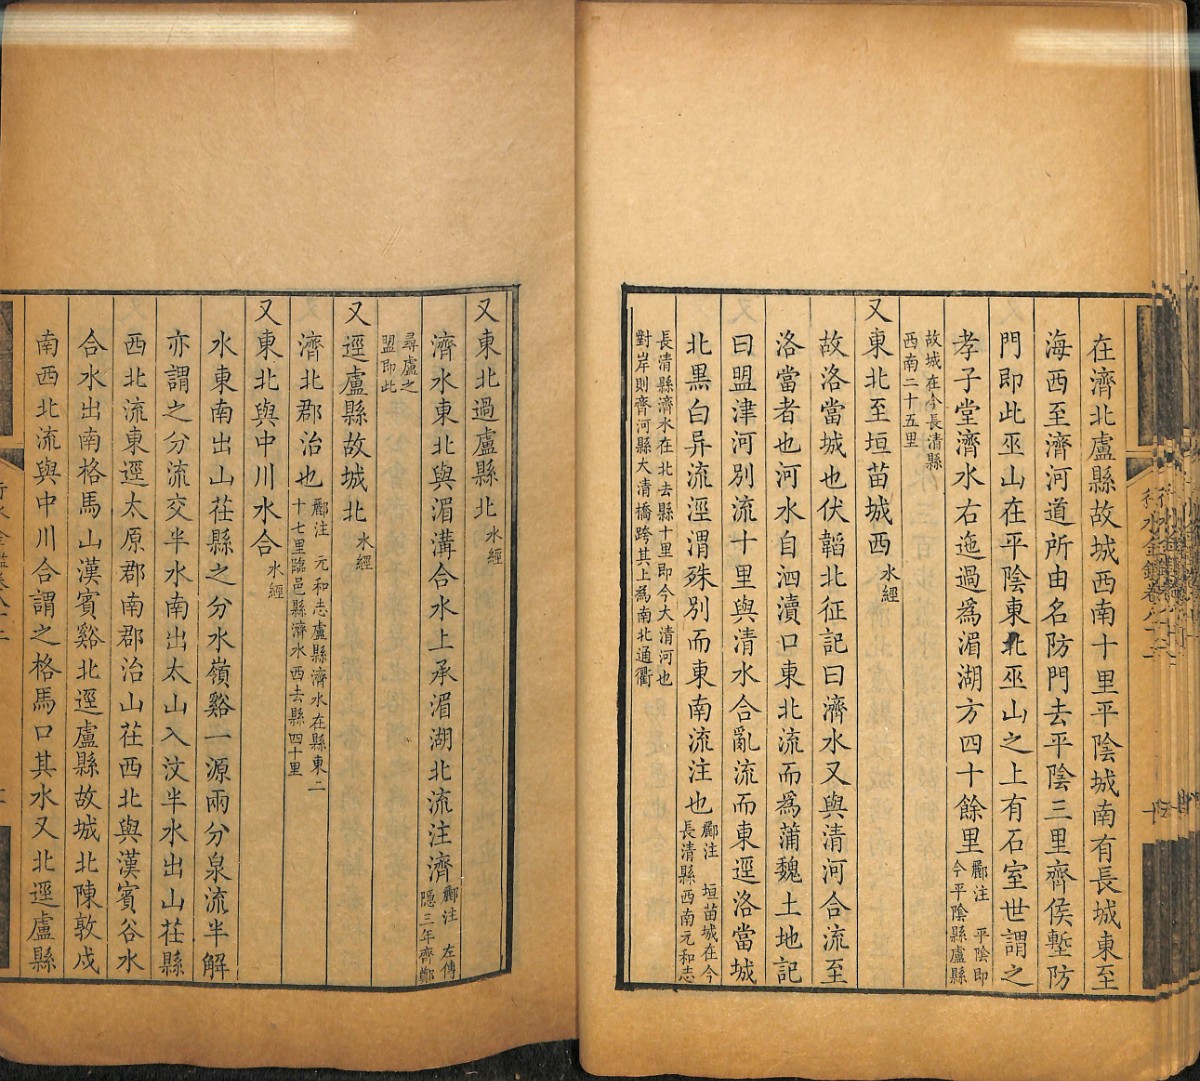 在濟北盧縣故城西南十里平陰城南有長城東至
海西至濟河道所由名防門去平陰三里齊侯塹防
門即此巫山在平陰東北巫山之上有石室世謂之
孝子堂濟水右迤過爲湄湖方四十餘里酈注 平陰即今平陰縣盧縣
故城在今長清縣西南二十五里
又東北至垣苗城西水經
故洛當城也伏韜北征記曰濟水又與清河合流至
洛當者也河水自泗瀆口東北流而爲蒲魏土地記
曰盟津河別流十里與清水合亂流而東逕洛當城
北黑白异流涇渭殊別而東南流注也酈注 垣苗城在今長清縣西南元和志
長清縣濟水在北去縣十里即今大清河也對岸則齊河縣大清橋跨其上爲南北通衢
行水金鑑卷八十二
又東北過盧縣北水經
濟水東北與湄溝合水上承湄湖北流注濟酈注 左傳隱三年齊鄭
尋盧之盟即此
又逕盧縣故城北水經
濟北郡治也酈注 元和志盧縣濟水在縣東二十七里臨邑縣濟水西去縣四十里
又東北與中川水合水經
水東南出山茌縣之分水嶺谿一源兩分泉流半解
亦謂之分流交半水南出太山入汶半水出山茌縣
西北流東逕太原郡南郡治山茌西北與漢賓谷水
合水出南格馬山漢賓谿北逕盧縣故城北陳敦戍
南西北流與中川合謂之格馬口其水又北逕盧縣